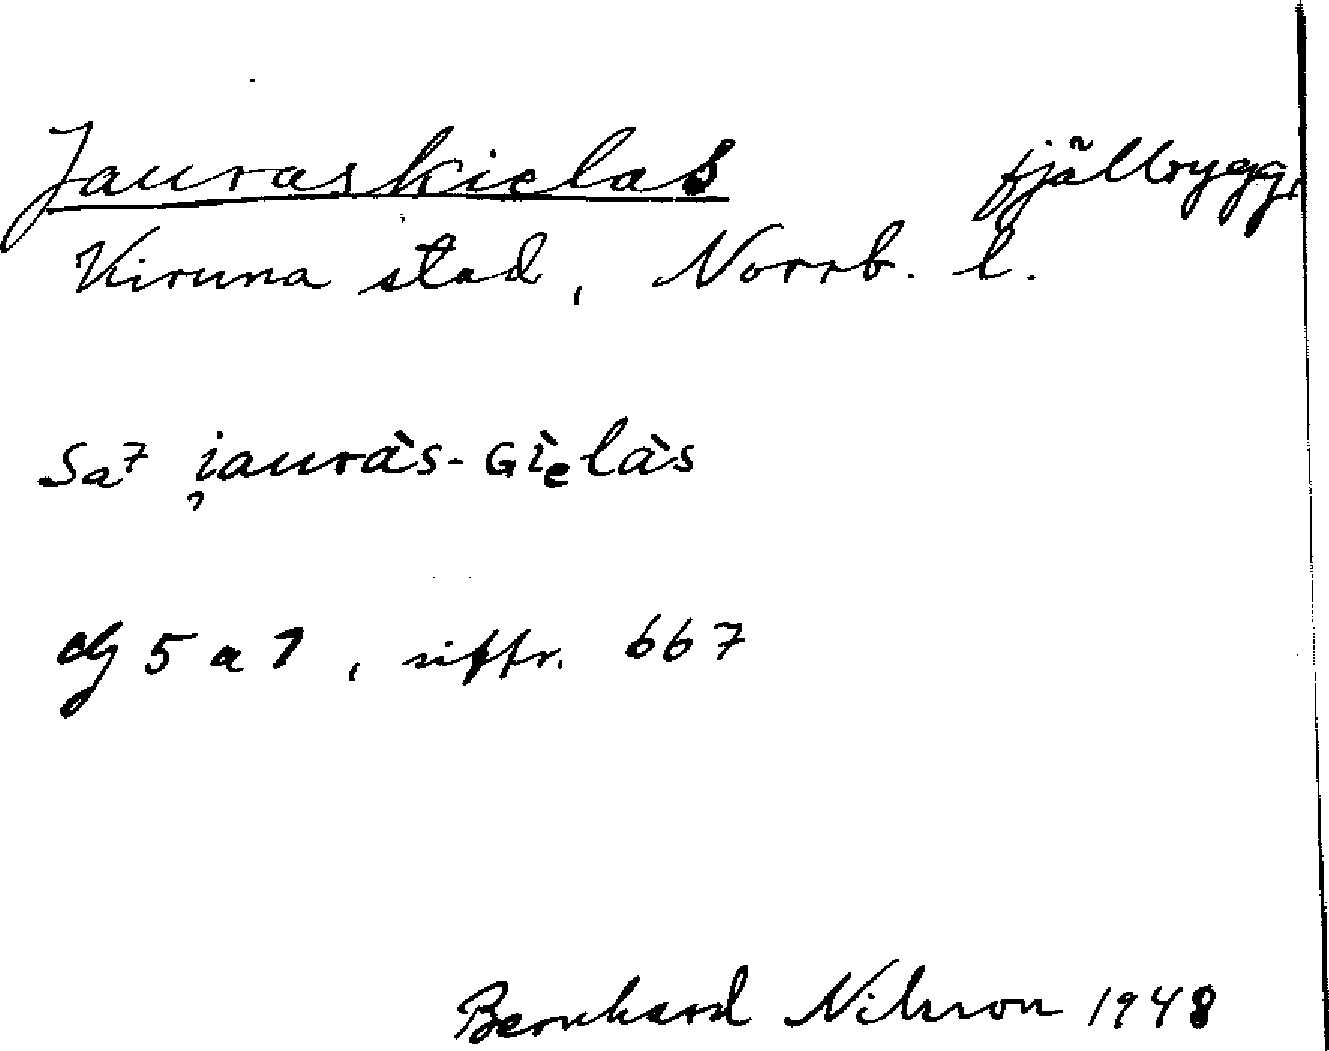 Jauraskielas fjällrygg,
Kiruna stad, Norrb. l.
Sa7 i̯auràs-Gìₑlàs
5 a 7, siffr. 667
Bernhard Nilsson 1948